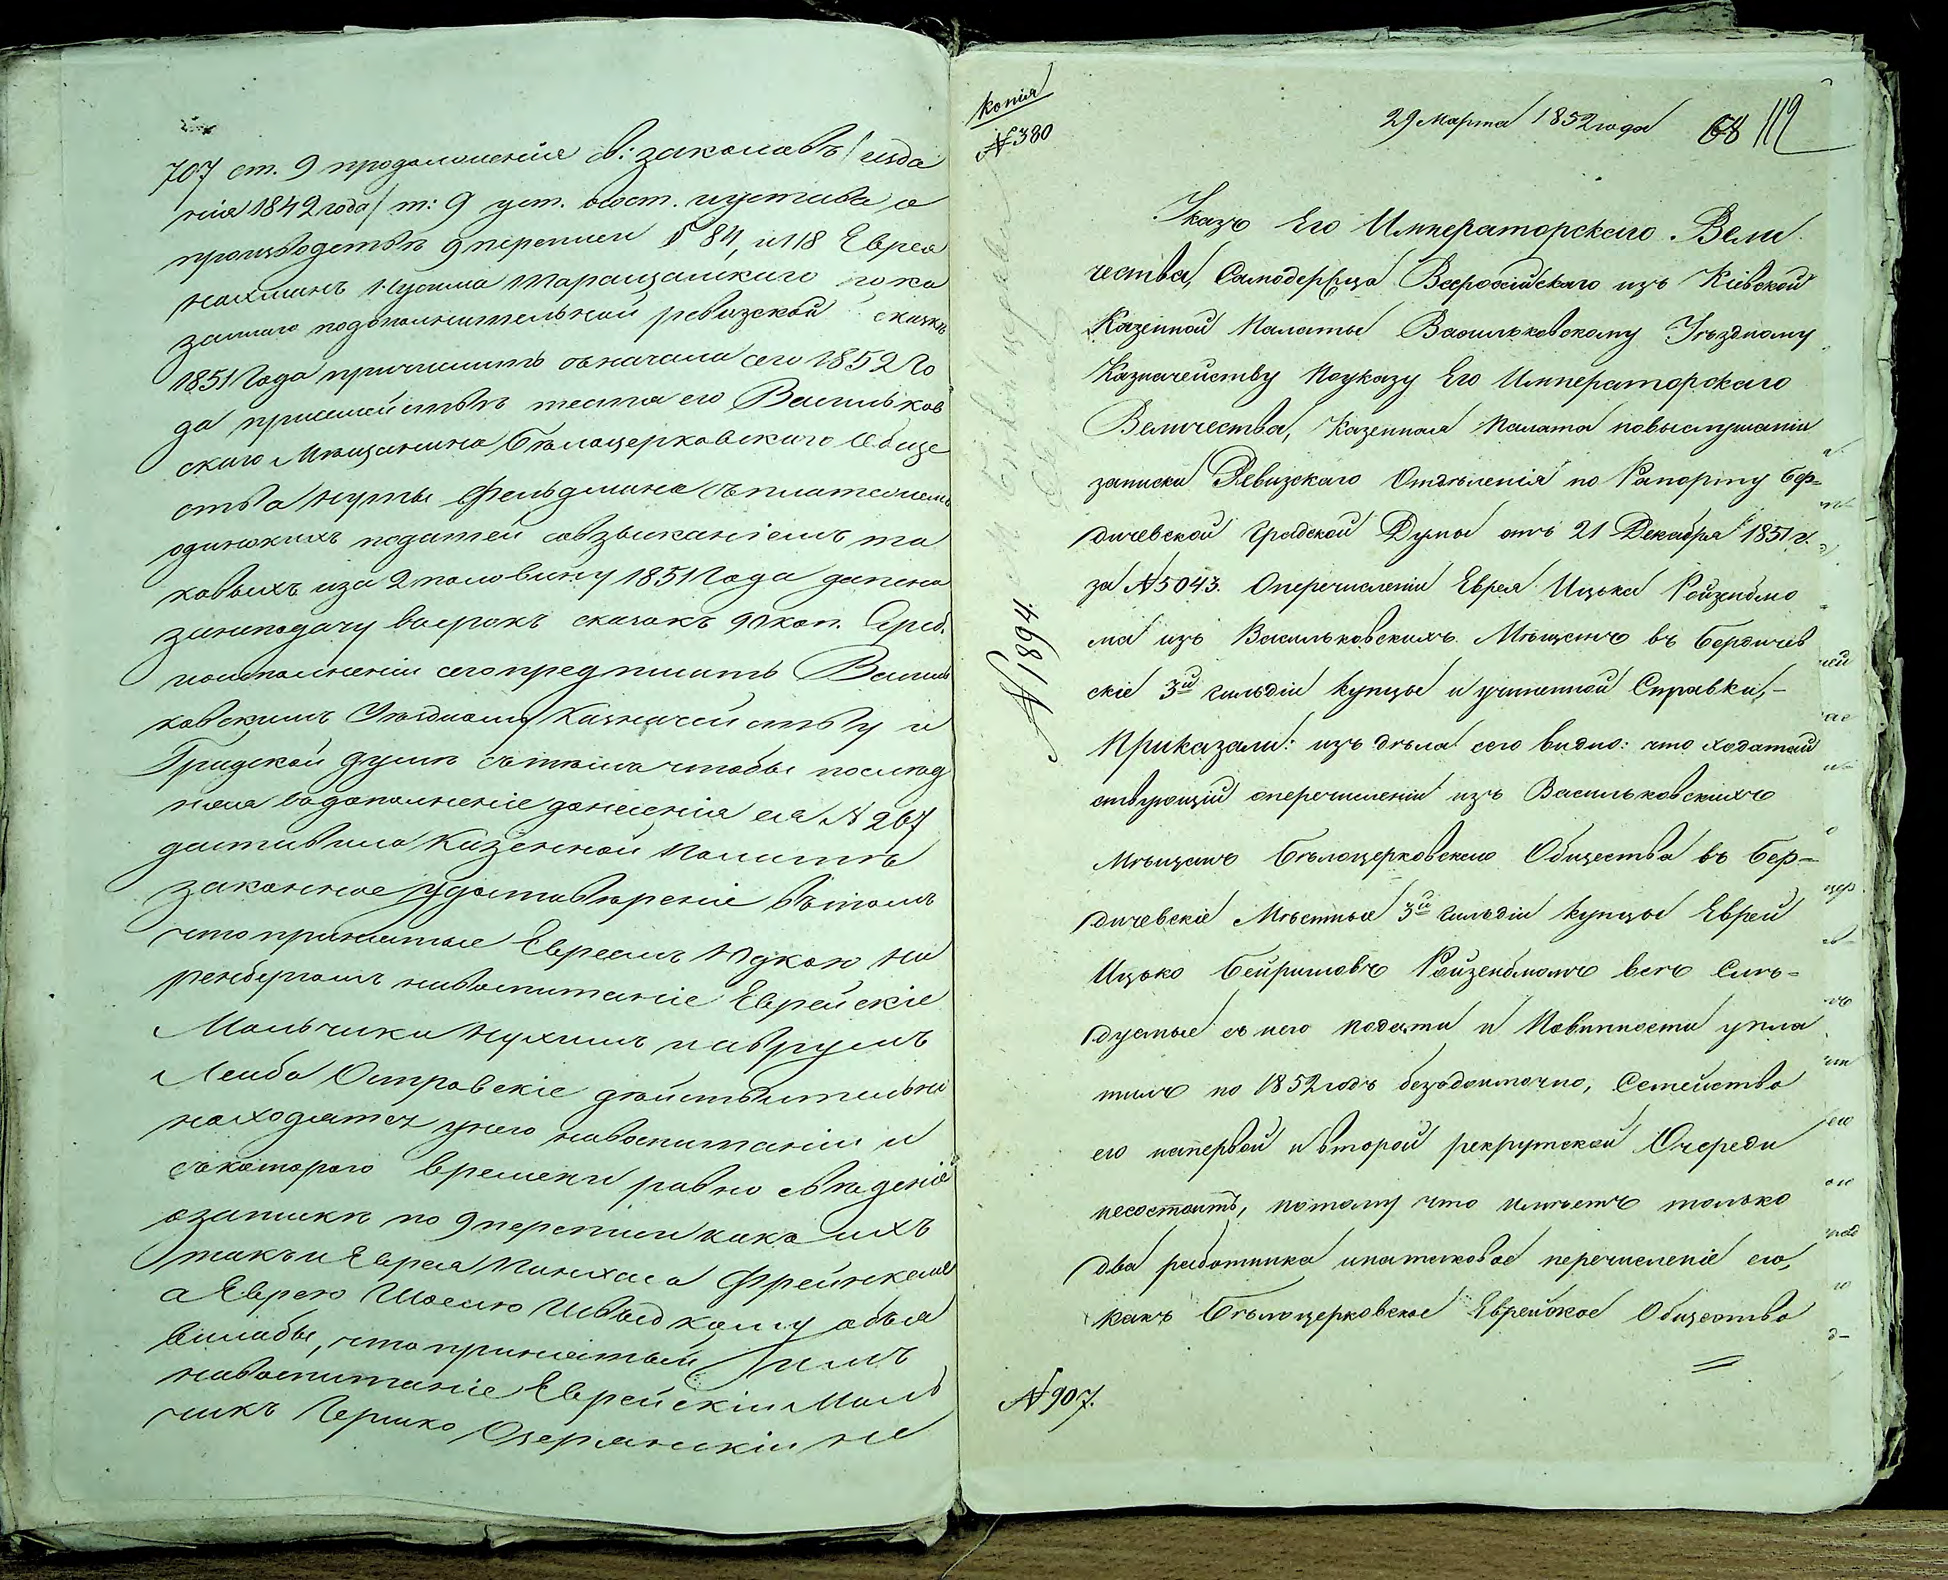 707 ст. 9 продолженіе св: законовъ / изда
нія 1842 года / т: 9 уст. о сост. и устава о
производствѣ 9 переписи § 84, и 118 Еврея
Нахмана Нусима Таращанскаго пока
заннаго по дополнительной ревизской сказкѣ
1851 Года причислить съ начала сего 1852 Го
да при семействѣ тестя его Васильков
скаго Мѣщанина Бѣлоцерковскаго Обще
ства Нуты Фельдмана съ платежемъ
одинокихъ податей со взысканіемъ та
ковыхъ и за 2 половину 1851 Года и пени
за неподачу въ срокъ сказокъ 90 коп. Сереб.
по исполненіи сего предписать Василь
ковскимъ Уѣздному Казначейству и
Градской Думѣ съ тѣмъ чтобы послѣд
няя въ дополненіе донесенія ея № 267
доставила Казенной Палатѣ
законное удостовѣреніе въ томъ
что принятые Евреемъ Юдкою На
ренбергомъ на воспитаніе Еврейскіе
Мальчики Нухимъ и Аврумъ
Лейба Островскіе дѣйствительно
находятся у него на воспитаніи и
съ котораго времени равно свѣденіе
о запискѣ по 9 переписи какъ ихъ
такъ и Еврея Пинхаса Френкеля
а Еврею Шоелю Швыдкому объя
вила бы, что принятый имъ
на воспитаніе Еврейскій Маль
чикъ Гершко Озерянскій не
Копія
№ 380
29 Марта 1852 года 68 112
Указъ Его Императорскаго Вели
чества, Самодержца Всероссійскаго изъ Кіевской
Казенной Палаты Васильковскому Уѣздному
Казначейству По указу Его Императорскаго
Величества, Казенная Палата по выслушаніи
записки Ревизскаго Отдѣленія по Рапорту Бер=
дичевской Градской Думы отъ 21 Декабря 1851 г.
за № 5043. О перечисленіи Еврея Ицька Ройзенбло
ма изъ Васильковскихъ Мѣщанъ въ Бердичев
скіе 3й гильдіи купцы и учиненной Справки,–
Приказали: изъ дѣла сего видно: что ходатай
ствующій о перечисленіи изъ Васильковскихъ
Мѣщанъ Бѣлоцерковскаго Общества въ Бер=
дичевскіе Мѣстные 3й гильдіи купцы Еврей
Ицько Бейришовъ Ройзенбломъ всѣ Слѣ=
дуемые съ него подати и Повинности упла
тилъ по 1852 годъ бездоимочно, Семейство
его на первой и второй рекрутской Очереди
не состоитъ, потому что имѣетъ только
два работника и на таковое перечисленіе его,
какъ Бѣлоцерковское Еврейское Общество
№ 1894
№ 907.